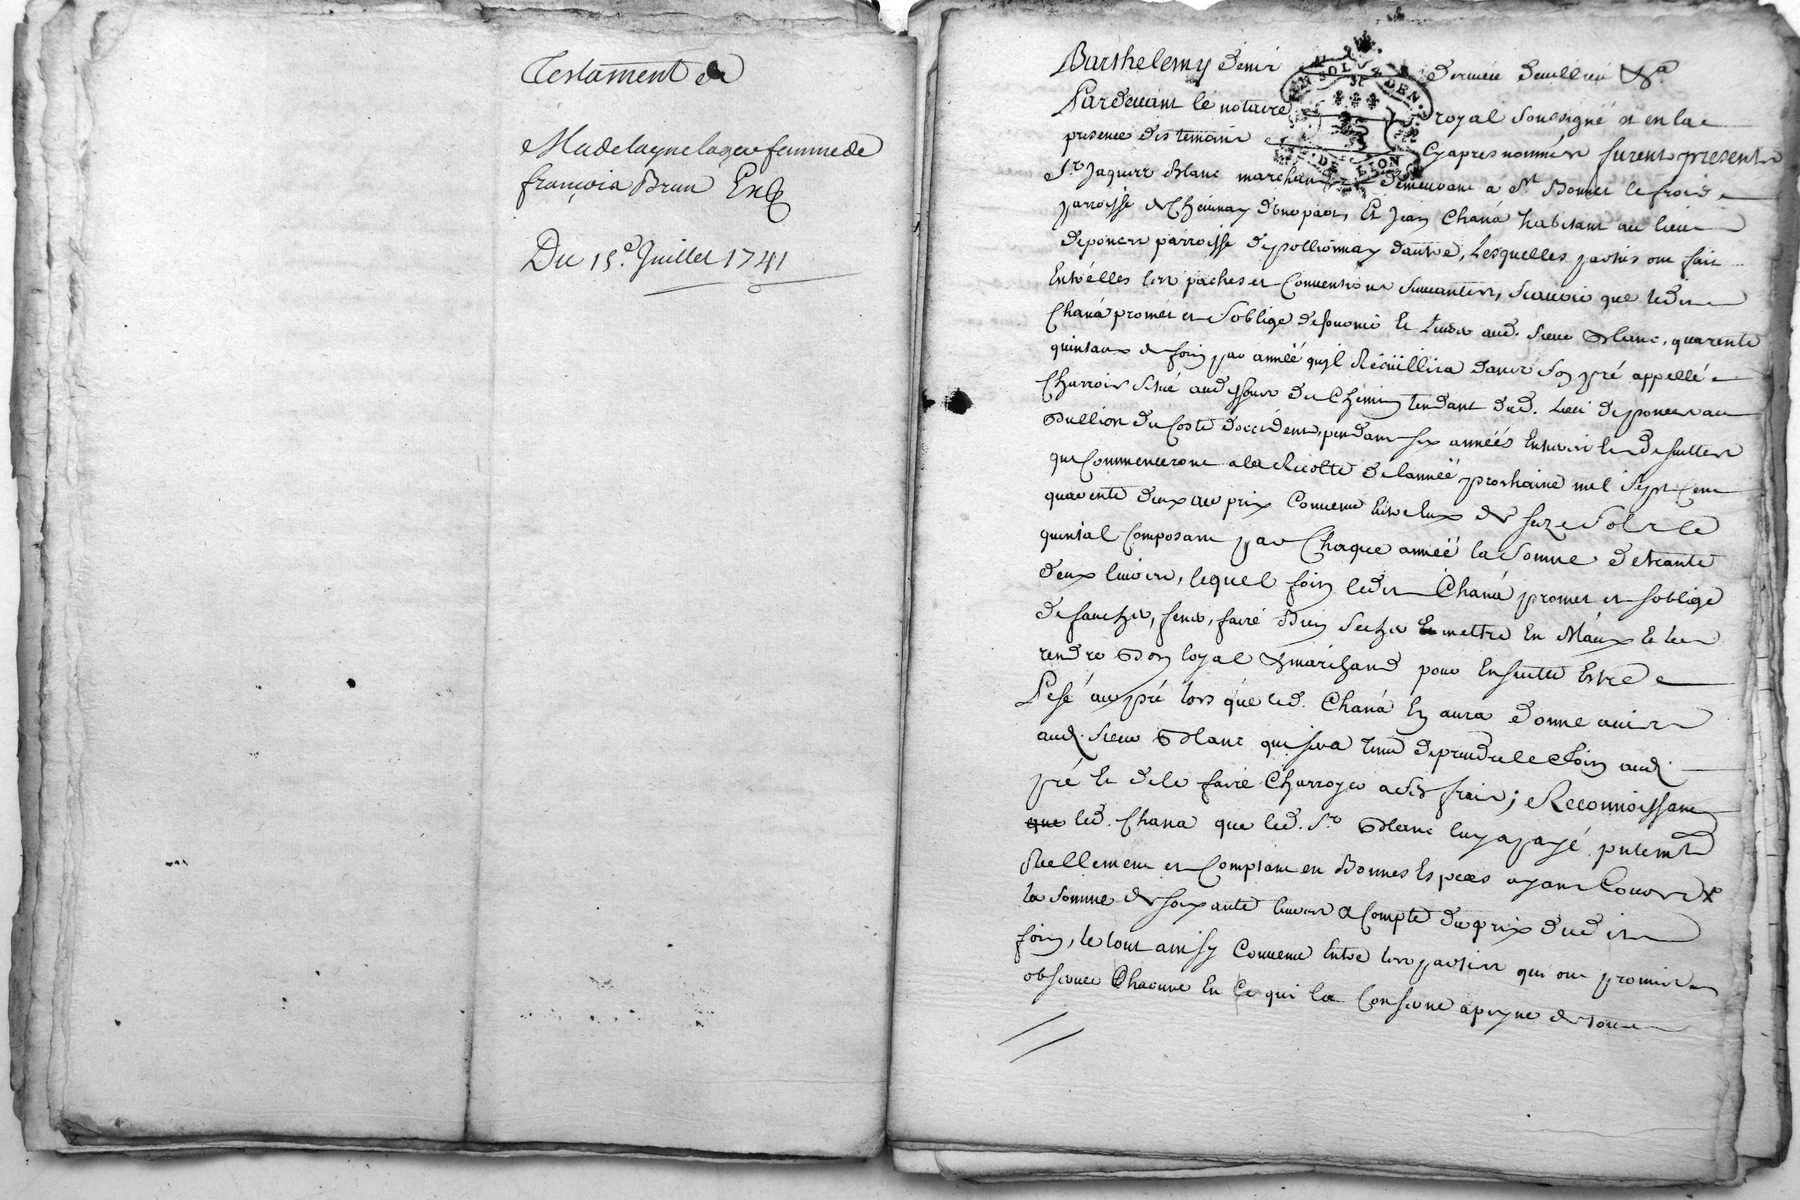 Testament de
Madelayne femme de
françois Brun Exp
Du 15e. Juillet 1741
Barthelemy denis
Pardevant le notaire royal soussigné et en la
presence des temoins Cyapres nommés furent presents
Sr. Jaques Blanc marchand demeurant a St Bonnet le froid
parroisse de Chevinay d'une part, Et Jean Chana habitant au lieu
de poncer parroisse de pollionnay dautre, Lesquelles parties ont fait
Entr'elles les paches et Conventions suivantes, scauoir que ledit
Chana promet et s'oblige de fournir et livrer aud. sieur Blanc, quarente
quintaux de foin par année qu'il Recüillira dans son pré appellé
Charrois situé au dessous du Chemin tendant dud. Lieu de poncer au
Bullion du Costé d'occident, pendant six années Entieres et de suittes
qui Commenceront a la Recolte de l'année prochaine mil sept Cent
quarente deux au prix Convenu Entre Eux de seize sols le
quintal Composant par Chaque année la somme de trante
deux livres, lequel foin ledit Chana promet et s'oblige
de faucher, fener, faire Bien secher et mettre En Maux et le
rendre Bon loyal & marchand pour Ensuitte Estre
Pesé au pré lors que led. Chana En aura donné avis
aud. sieur Blanc qui sera tenu de prendre le foin aud.
pré Et de le faire Charroyer a ses frais; Reconnoissant
que led. Chana que led. Sr. Blanc luy a payé pntemt
Reellement et Comptant en Bonnes Especes ayant Cours
la somme de soixante livres a Compte du prix dudit
foin, le tout ainsy Convenu Entre les parties qui ont promis
observer Chacune En Ce qui la Conserne a peyne de tous